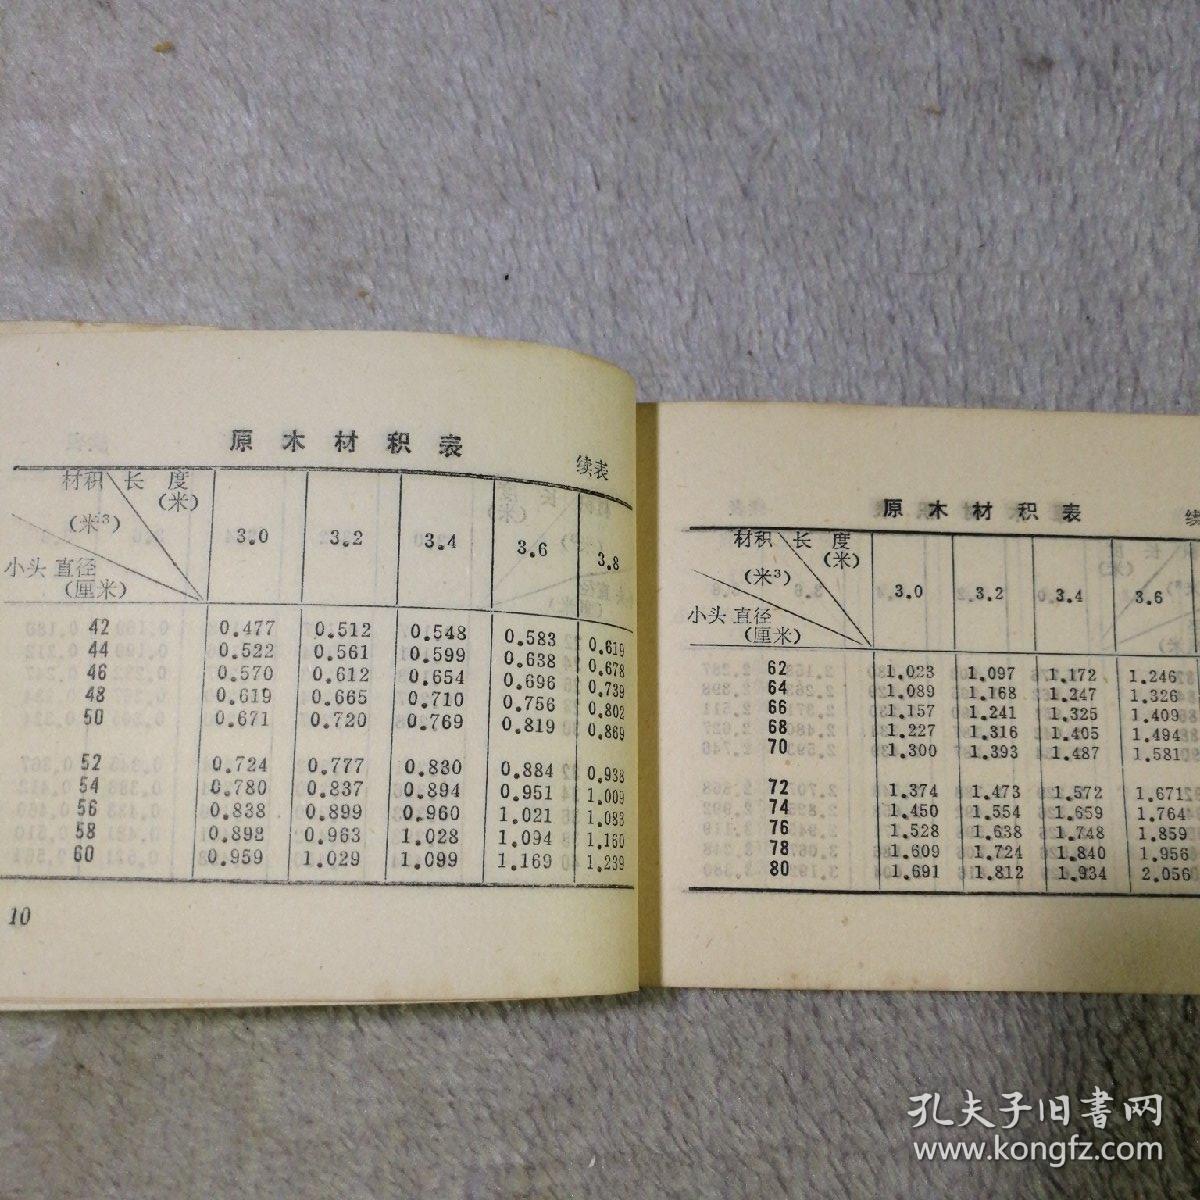 原木材积表
续表
材积 长度
(米)
(米³)
小头直径
(厘米)
3.0 3.2 3.4 3.6 3.8
42 0.477 0.512 0.548 0.583 0.619
44 0.522 0.561 0.599 0.638 0.678
46 0.570 0.612 0.654 0.696 0.739
48 0.619 0.665 0.710 0.756 0.802
50 0.671 0.720 0.769 0.819 0.869
52 0.724 0.777 0.830 0.884 0.938
54 0.780 0.837 0.894 0.951 1.009
56 0.838 0.899 0.960 1.021 1.083
58 0.898 0.963 1.028 1.094 1.160
60 0.959 1.029 1.099 1.169 1.239
10
原木材积表
续
材积 长度
(米)
(米³)
小头直径
(厘米)
3.0 3.2 3.4 3.6
62 1.023 1.097 1.172 1.246
64 1.089 1.168 1.247 1.326
66 1.157 1.241 1.325 1.409
68 1.227 1.316 1.405 1.494
70 1.300 1.393 1.487 1.581
72 1.374 1.473 1.572 1.671
74 1.450 1.554 1.659 1.764
76 1.528 1.638 1.748 1.859
78 1.609 1.724 1.840 1.956
80 1.691 1.812 1.934 2.056
孔夫子旧書网
www.kongfz.com